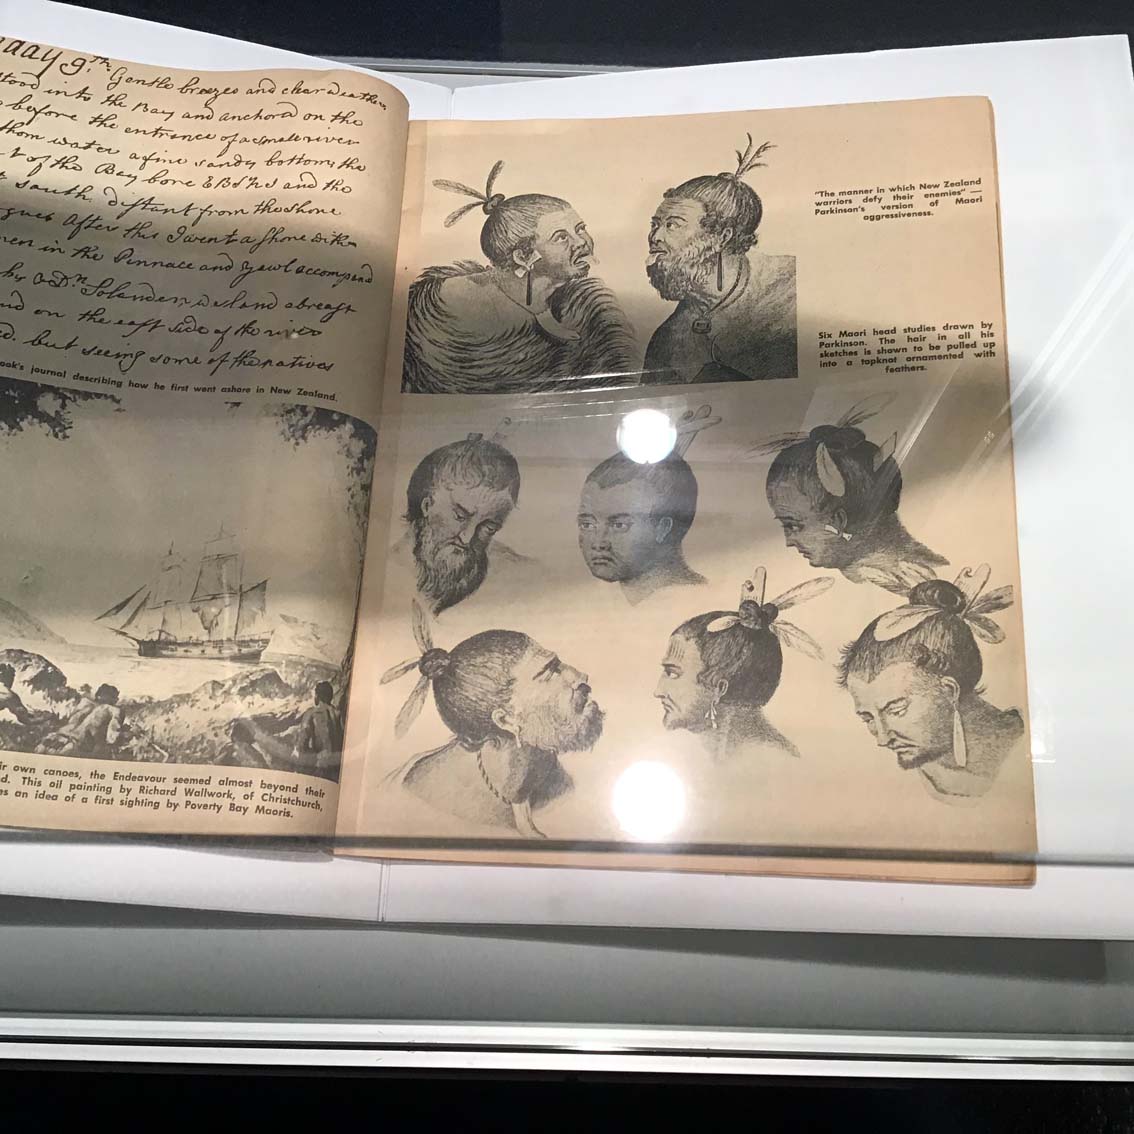 9.th Gentle breezes and clear weather
stood into the Bay and anchord on the
before the entrance of a small river
thom water a fine sandy bottom, the
of the Bay bore EBS¼S and the
south distant from the shore
After this I went a shore with
men in the Pinnace and yawl accompend
by Dn. Solander we land abreast
and on the east side of the river
but seeing some of the natives
journal describing how he first went ashore in New Zealand.
own canoes, the Endeavour seemed almost beyond their
This oil painting by Richard Wallwork, of Christchurch,
an idea of a first sighting by Poverty Bay Maoris.
"The manner in which New Zealand
warriors defy their enemies" —
Parkinson's version of Maori
aggressiveness.
Six Maori head studies drawn by
Parkinson. The hair in all his
sketches is shown to be pulled up
into a topknot ornamented with
feathers.